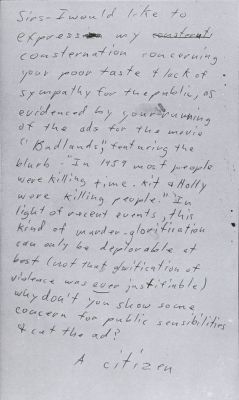 Sirs - I would like to
express my consternat
consternation concerning
your poor taste & lack of
sympathy for the public, as
evidenced by your running
of the ads for the movie
"Badlands", featuring the
blurb - "In 1959 most people
were killing time. Kit & Holly
were killing people." In
light of recent events, this
kind of murder-glorification
can only be deplorable at
best (not that glorification of
violence was ever justifiable)
why don't you show some
concern for public sensibilities
& cut the ad?
A citizen